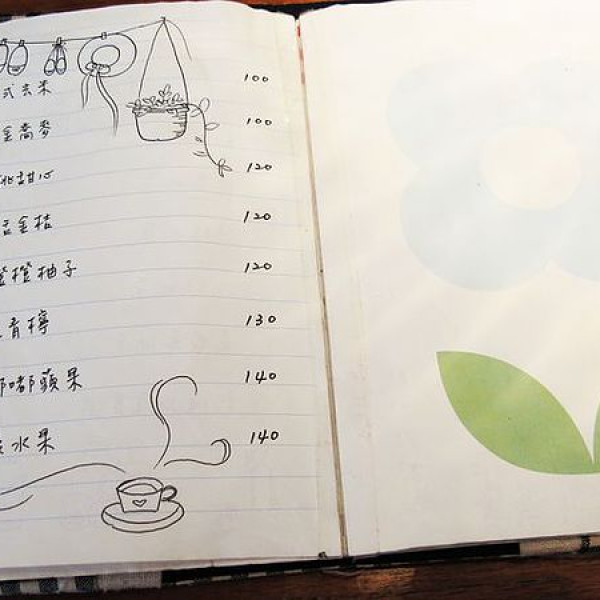 式玄米 100
金蕎麥 100
桃甜心 120
金桔 120
橙橙柚子 120
青檸 130
嘟嘟蘋果 140
水果 140